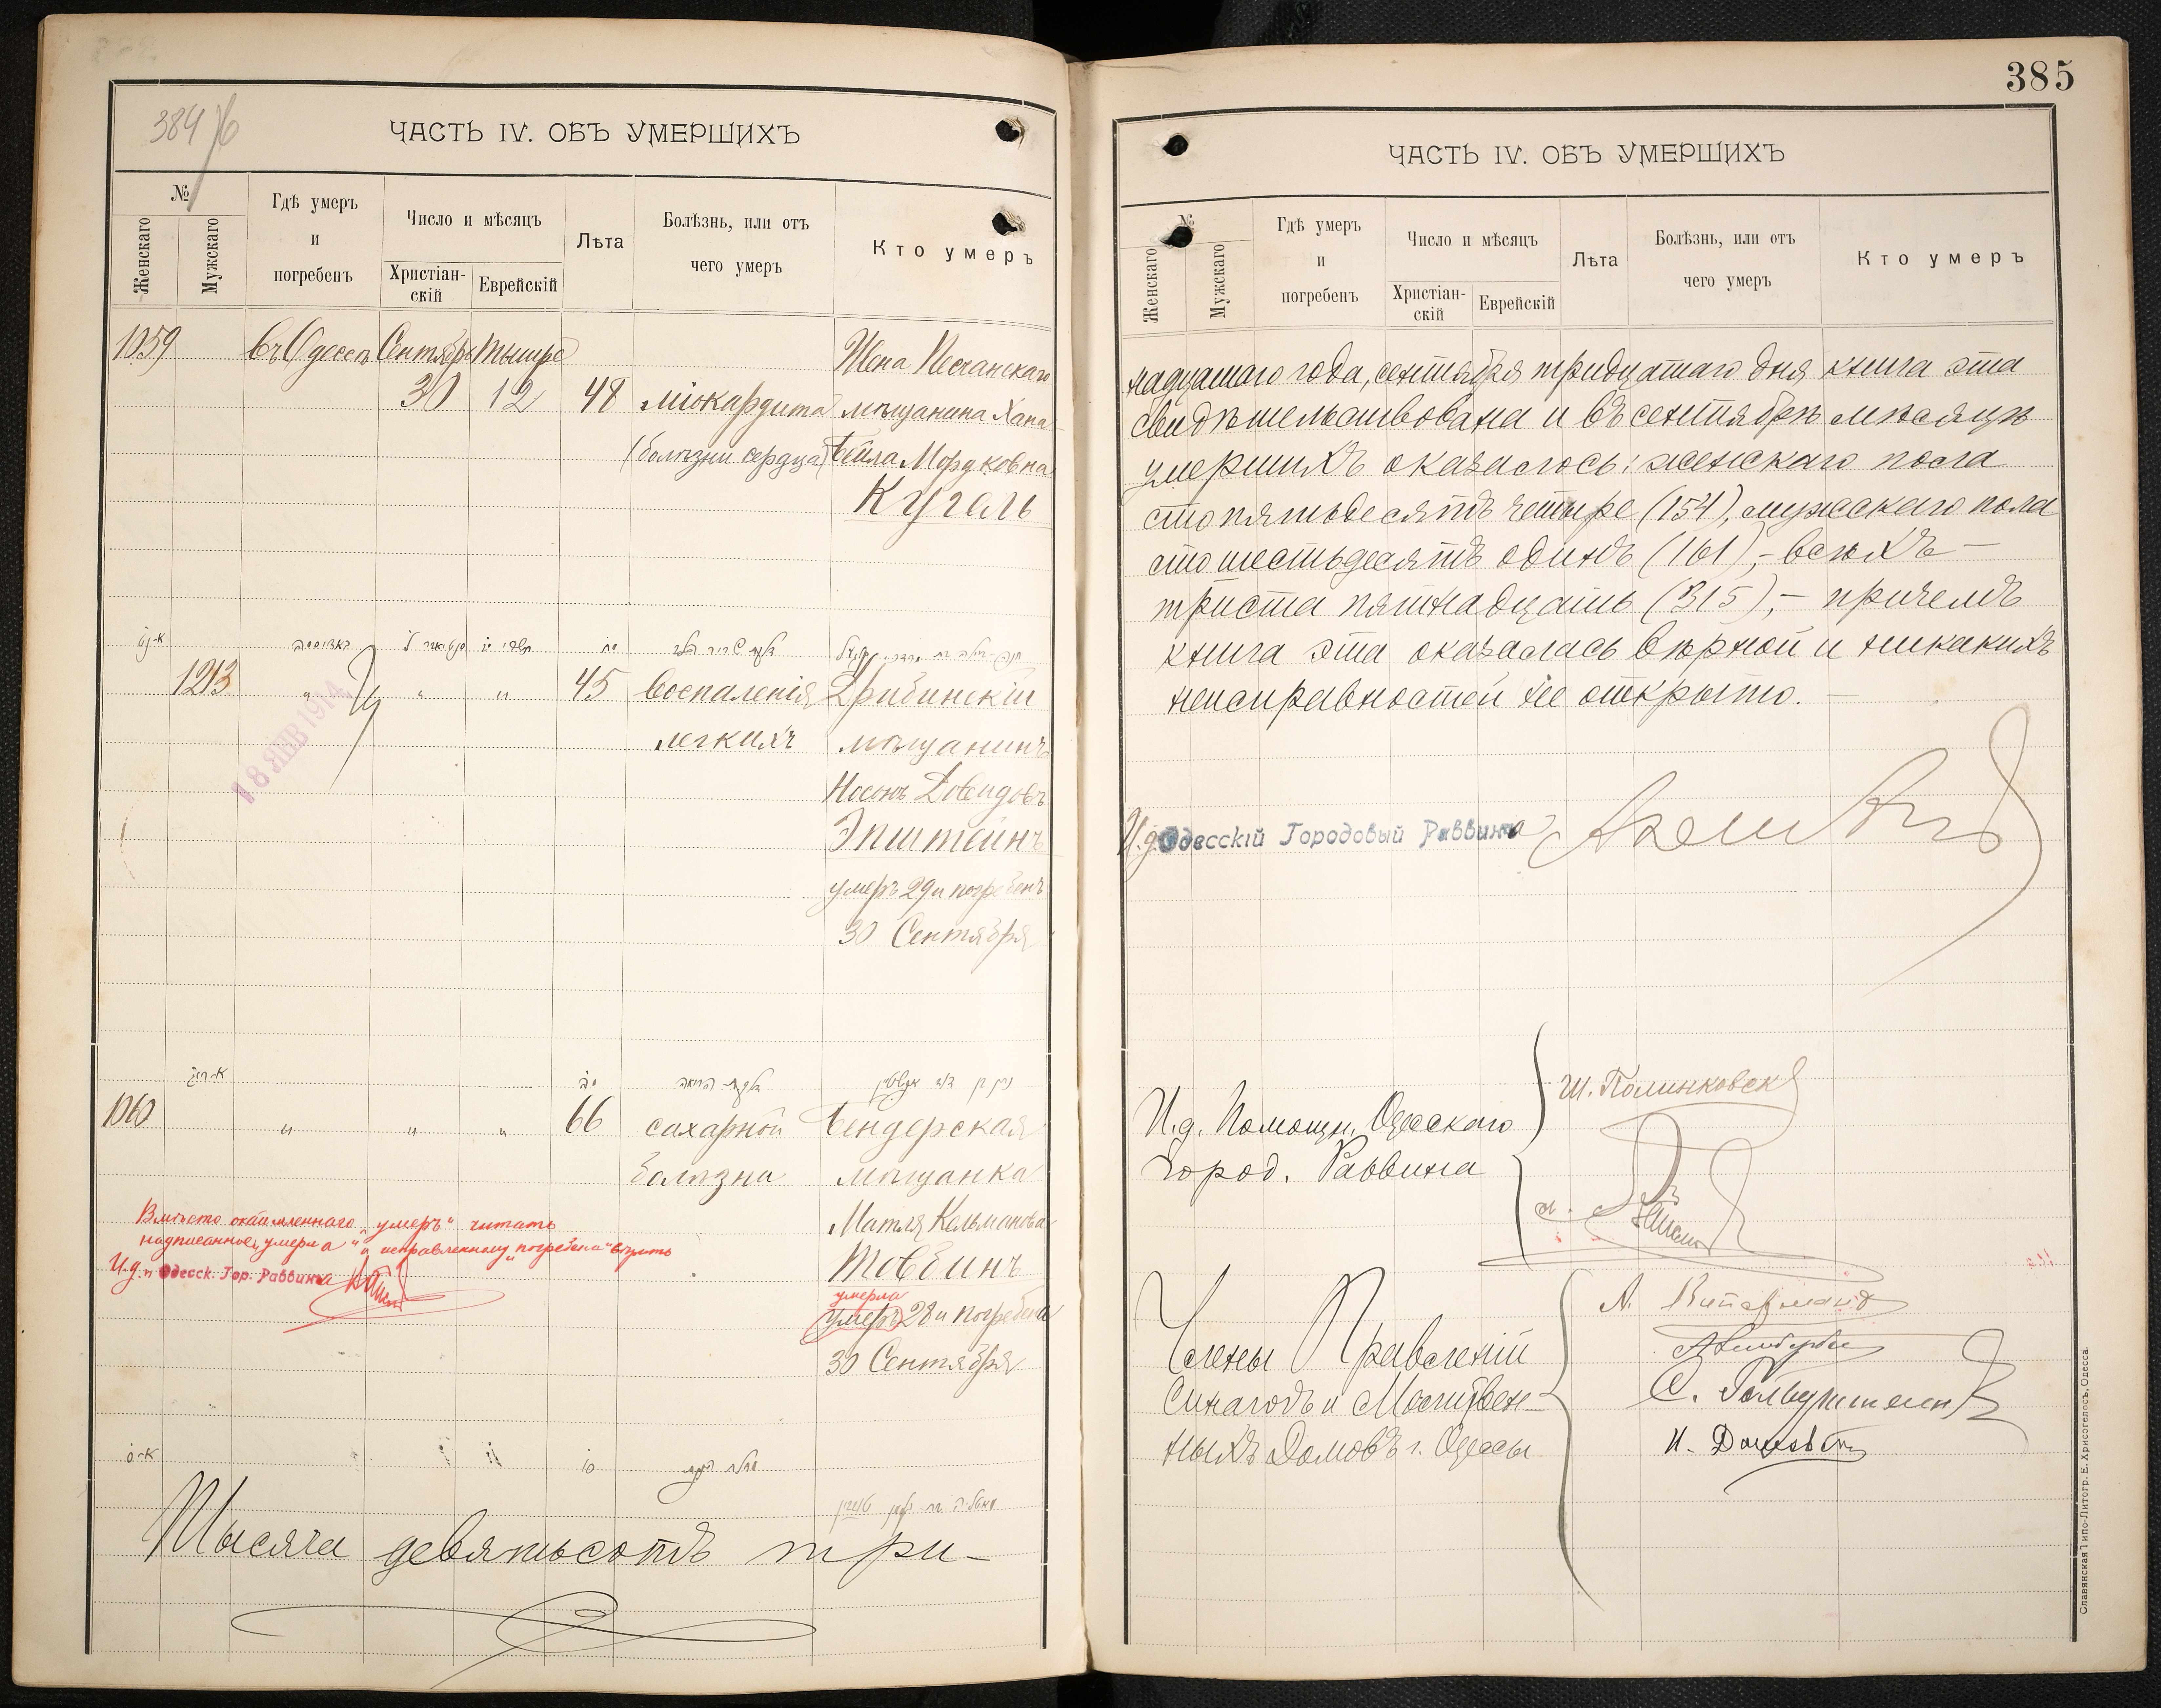 384 76
ЧАСТЬ IV. ОБЪ УМЕРШИХЪ
№
Женскаго
Мужскаго
Гдѣ умеръ
и
погребенъ
Число и мѣсяцъ
Христіан-
скій
Еврейскій
Лѣта
Болѣзнь, или отъ
чего умеръ
Кто умеръ
1059 въ Одессѣ Сентябрь Тышре Жена Песчанскаго
30 12 48 міокардита мѣщанина Хана
(болѣзни сердца) Бейла Мордковна
Кугель
1213 " " " 45 воспаленія Дрибинскій
легкихъ мѣщанинъ
18 ЯНВ 1914
Носонъ Довидовъ
Эпштейнъ
умеръ 29 и погребенъ
30 Сентября
1060 " " " 66 сахарной Бендерская
болѣзни мѣщанка
Матля Кельманова
Товбинъ
умерла
умеръ 28 и погребена
30 Сентября
Вмѣсто окаймленнаго „умеръ" читать
надписанное „умерла" и исправленному „погребена" вѣрить
И.д. Одесск. Гор. Раввина
Тысяча девятьсотъ три-
385
ЧАСТЬ IV. ОБЪ УМЕРШИХЪ
№
Женскаго
Мужскаго
Гдѣ умеръ
и
погребенъ
Число и мѣсяцъ
Христіан-
скій
Еврейскій
Лѣта
Болѣзнь, или отъ
чего умеръ
Кто умеръ
надцатаго года, сентября тридцатаго дня книга эта
свидѣтельствована и въ сентябрѣ мѣсяцѣ
умершихъ оказалось: женскаго пола
сто пятьдесятъ четыре (154), мужскаго пола
сто шестьдесятъ одинъ (161), - всѣхъ -
триста пятнадцать (315), - причемъ
книга эта оказалась вѣрной и никакихъ
неисправностей не открыто. -
И.д. Одесскій Городовый Раввина
И.д. Помощн. Одесскаго
Город. Раввина
Ш. Полинковскій
Члены Правленій
Синагогъ и Молитвен-
ныхъ Домовъ г. Одессы
Славянская Типо-Литогр. Е. Хрисогелосъ, Одесса.